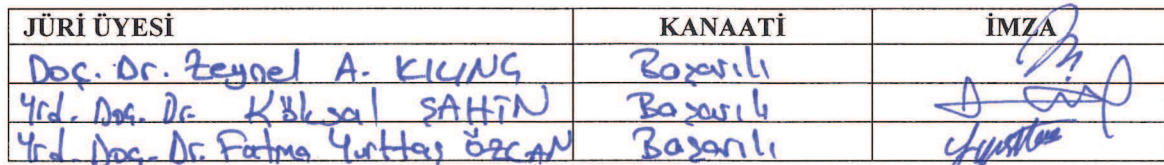 JÜRİ ÜYESİ KANAATİ İMZA
Doç. Dr. Zeynel A. KILINÇ Başarılı
Yrd. Doç. Dr. Köksal ŞAHİN Başarılı
Yrd. Doç. Dr. Fatma Yurttaş ÖZCAN Başarılı